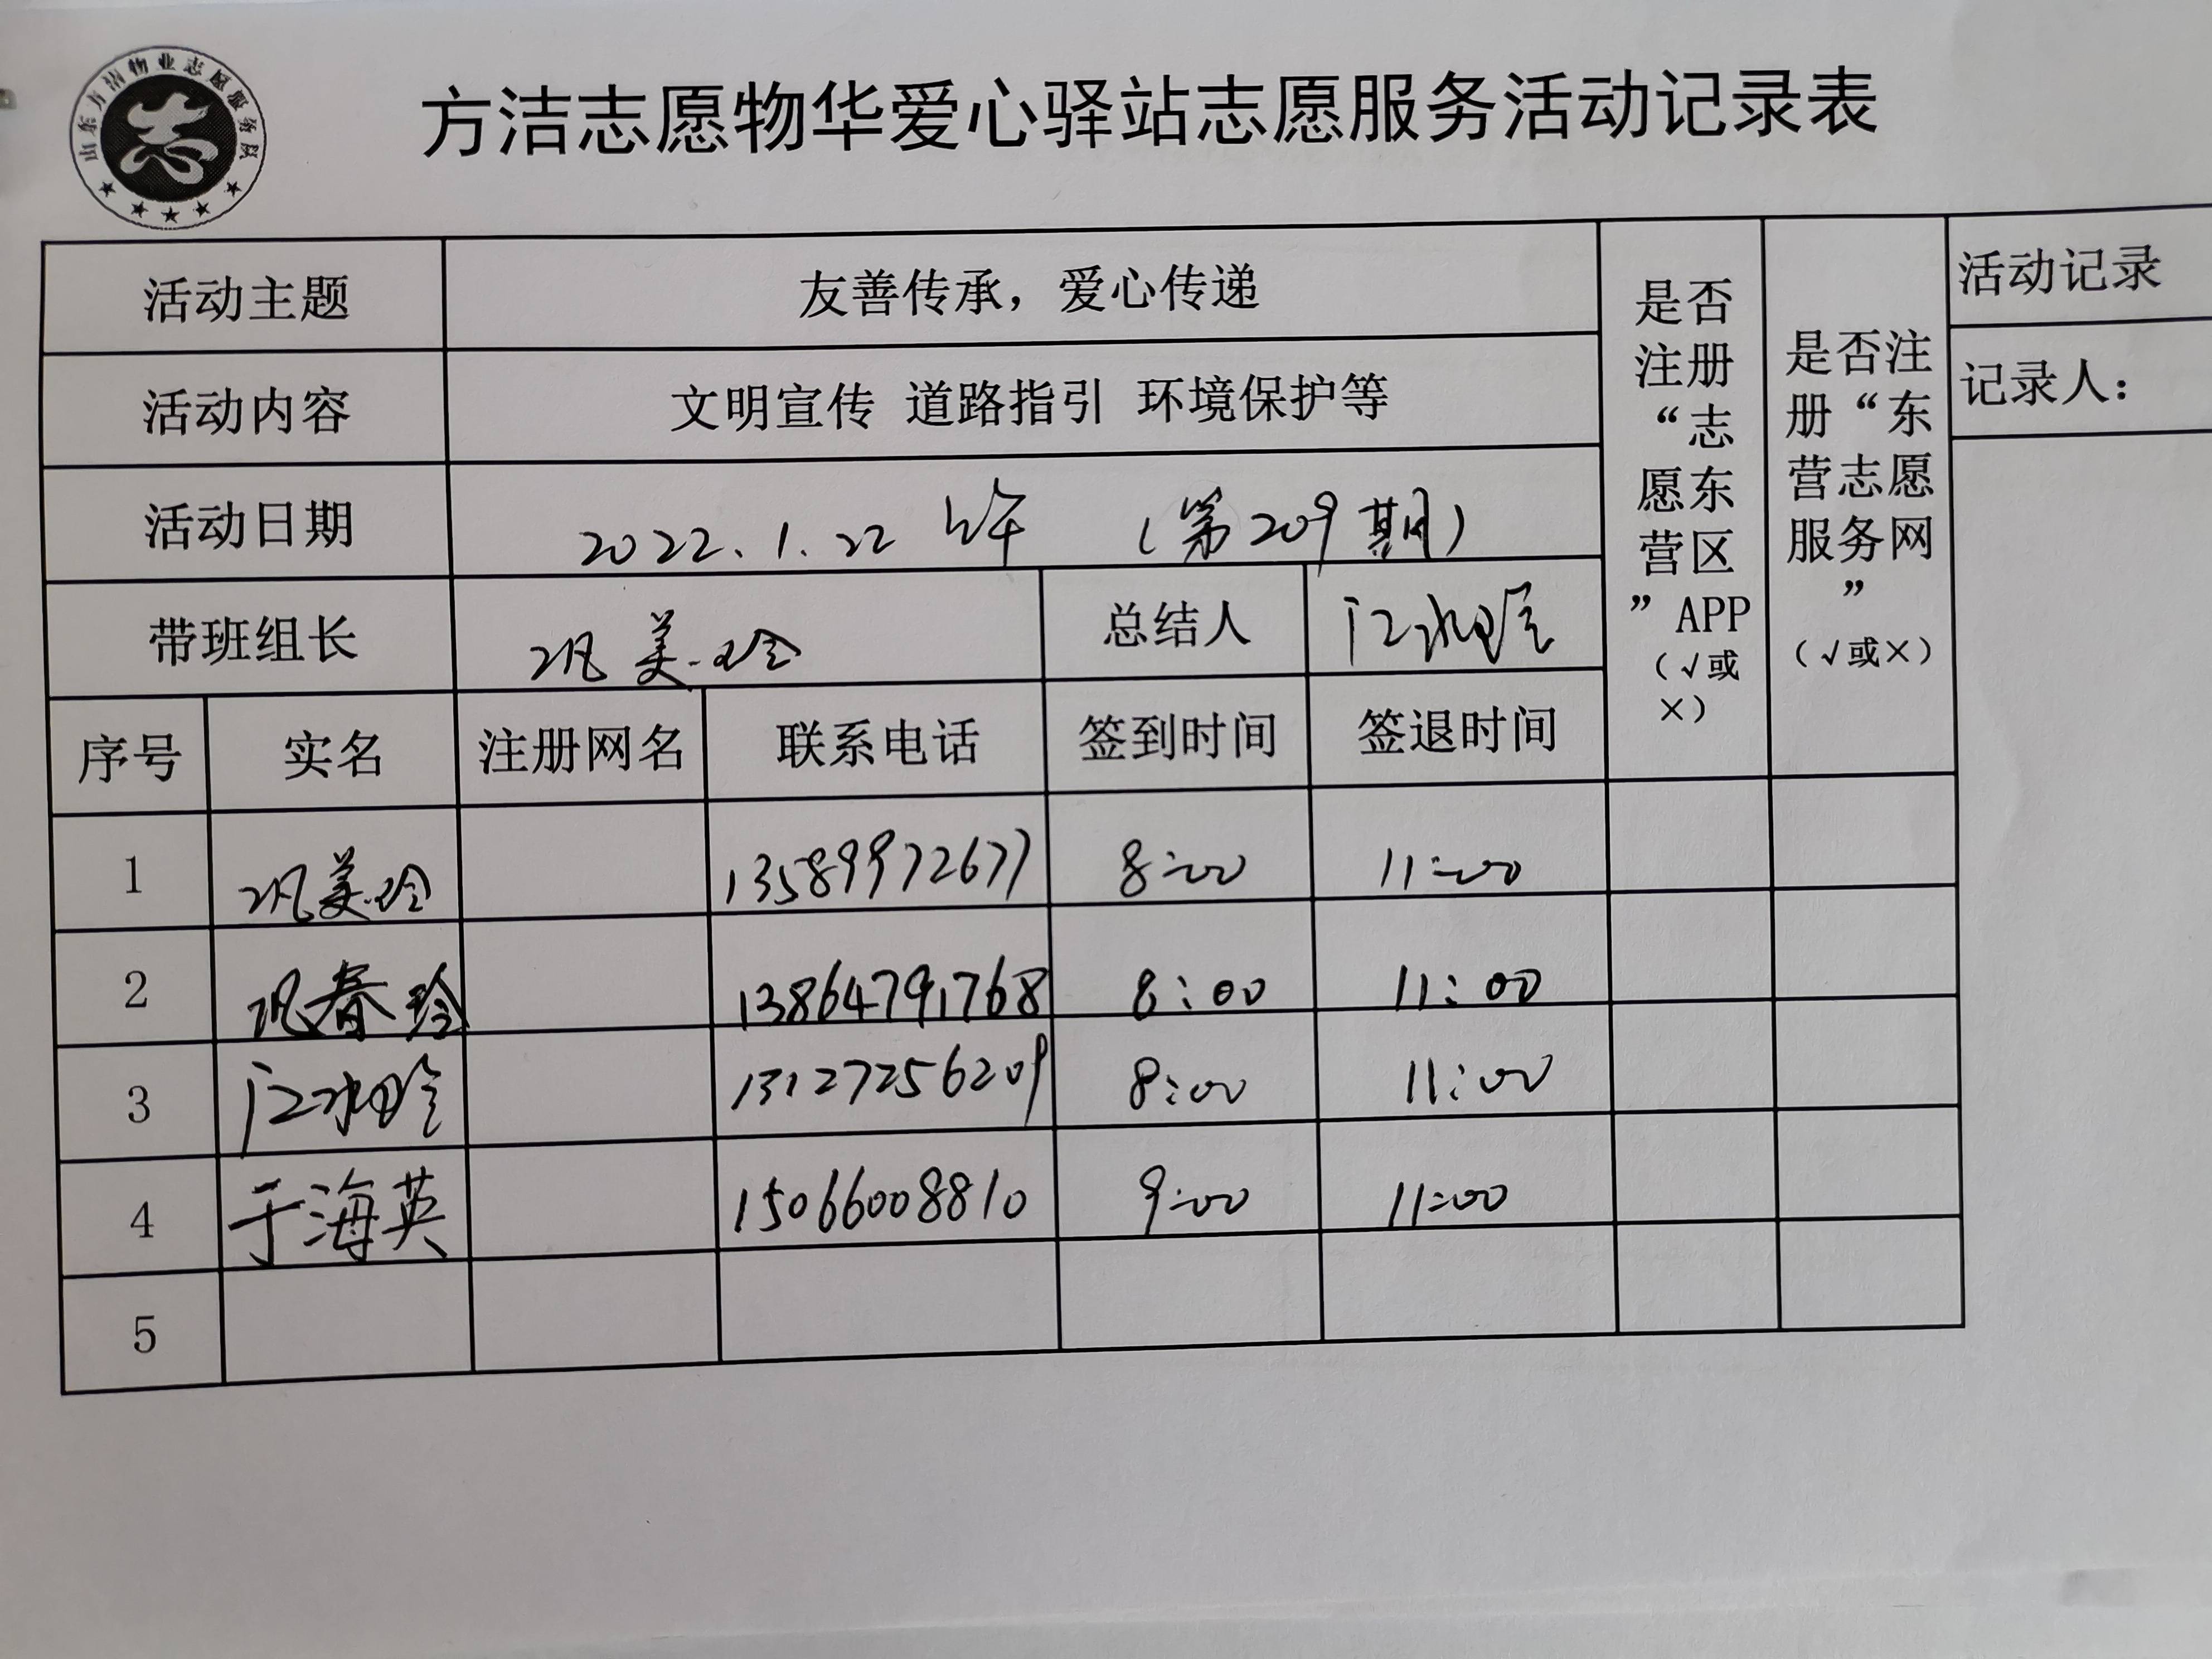 山东方洁物业志愿服务队
志
方洁志愿物华爱心驿站志愿服务活动记录表
活动主题 友善传承，爱心传递
活动内容 文明宣传 道路指引 环境保护等
活动日期 2022.1.22 上午 (第209期)
带班组长 巩美玲 总结人
是否
注册
“志
愿东
营区
”APP
（√或
×）
是否注
册“东
营志愿
服务网
”
（√或×）
活动记录
记录人：
序号 实名 注册网名 联系电话 签到时间 签退时间
1 巩美玲 13589972677 8:00 11:00
2 巩春玲 13864791768 8:00 11:00
3 13127256209 8:00 11:00
4 于海英 15066008810 9:00 11:00
5